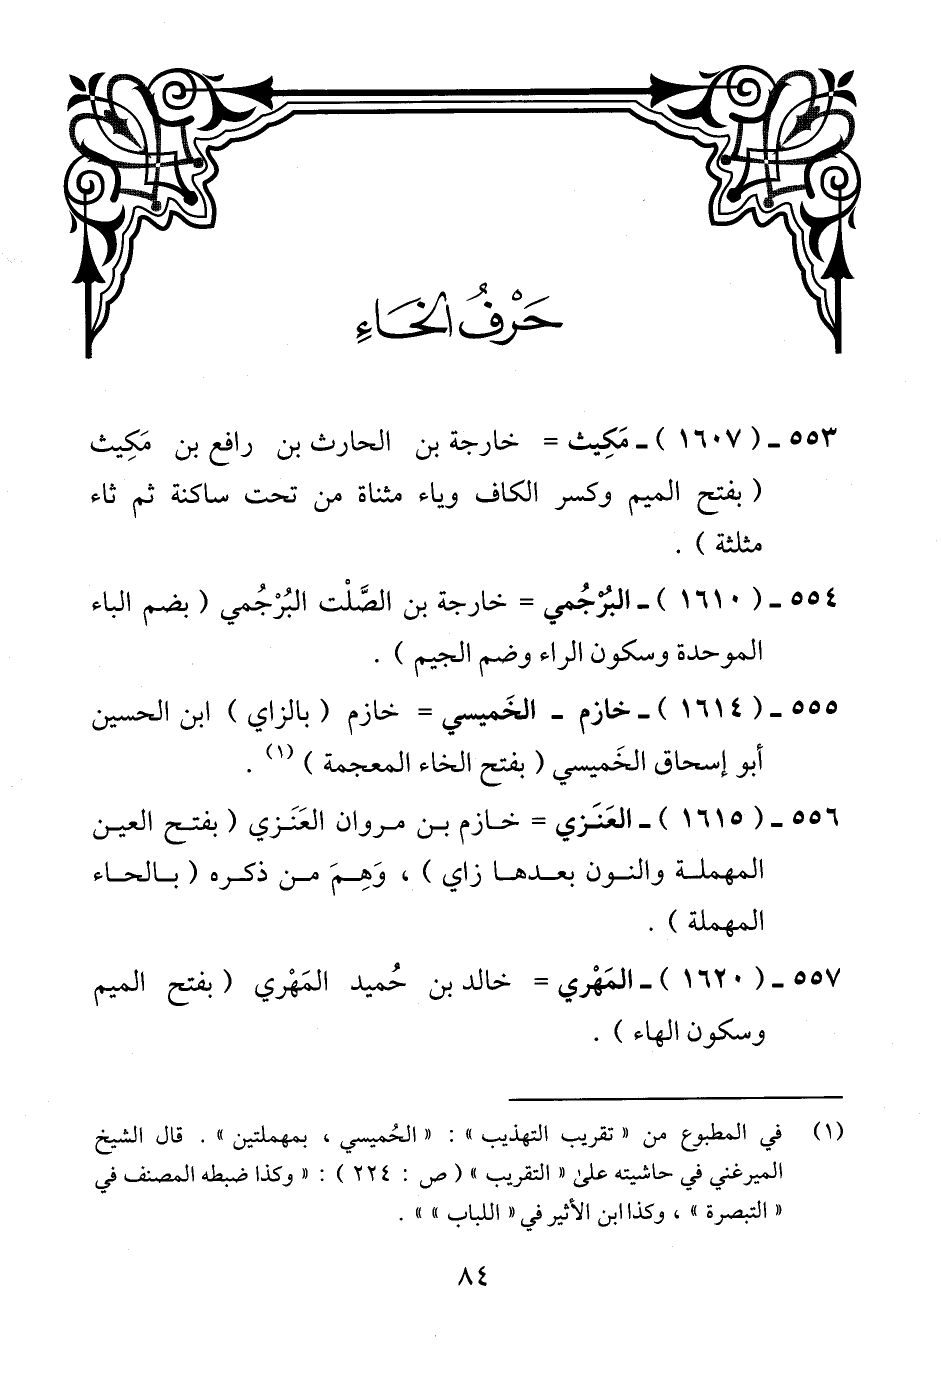 حَرْفُ الخَاءِ
٥٥٣ ـ ( ١٦٠٧ ) ـ مَكِيث = خارجة بن الحارث بن رافع بن مَكِيث
( بفتح الميم وكسر الكاف وياء مثناة من تحت ساكنة ثم ثاء
مثلثة ) .
٥٥٤ ـ ( ١٦١٠ ) ـ البُرْجُمي = خارجة بن الصَّلْت البُرْجُمي ( بضم الباء
الموحدة وسكون الراء وضم الجيم ) .
٥٥٥ ـ ( ١٦١٤ ) ـ خازم ـ الخَميسي = خازم ( بالزاي ) ابن الحسين
أبو إسحاق الخَميسي ( بفتح الخاء المعجمة ) (١) .
٥٥٦ ـ ( ١٦١٥ ) ـ العَنَزي = خازم بن مروان العَنَزي ( بفتح العين
المهملة والنون بعدها زاي ) ، وَهِمَ من ذكره ( بالحاء
المهملة ) .
٥٥٧ ـ ( ١٦٢٠ ) ـ المَهْري = خالد بن حُميد المَهْري ( بفتح الميم
وسكون الهاء ) .
(١) في المطبوع من « تقريب التهذيب » : « الحُميسي ، بمهملتين » . قال الشيخ
الميرغني في حاشيته علىٰ « التقريب » ( ص : ٢٢٤ ) : « وكذا ضبطه المصنف في
« التبصرة » ، وكذا ابن الأثير في « اللباب » » .
٨٤